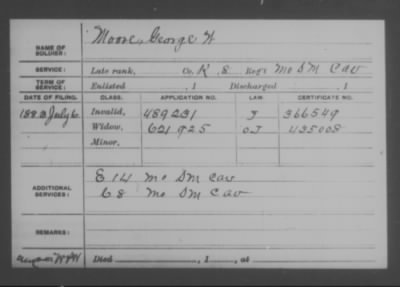 NAME OF SOLDIER: Moore, George W
SERVICE: Late rank, Co. K, 8 Reg't Mo S M Cav
TERM OF SERVICE: Enlisted , 1 Discharged , 1
DATE OF FILING. CLASS. APPLICATION NO. LAW CERTIFICATE NO.
1883 July 6. Invalid, 489231 J 366549
Widow, 621925 O.J 435008
Minor,
ADDITIONAL SERVICES: E 14 Mo S M Cav
C 8 Mo S M Cav
REMARKS:
Died , 1 , at